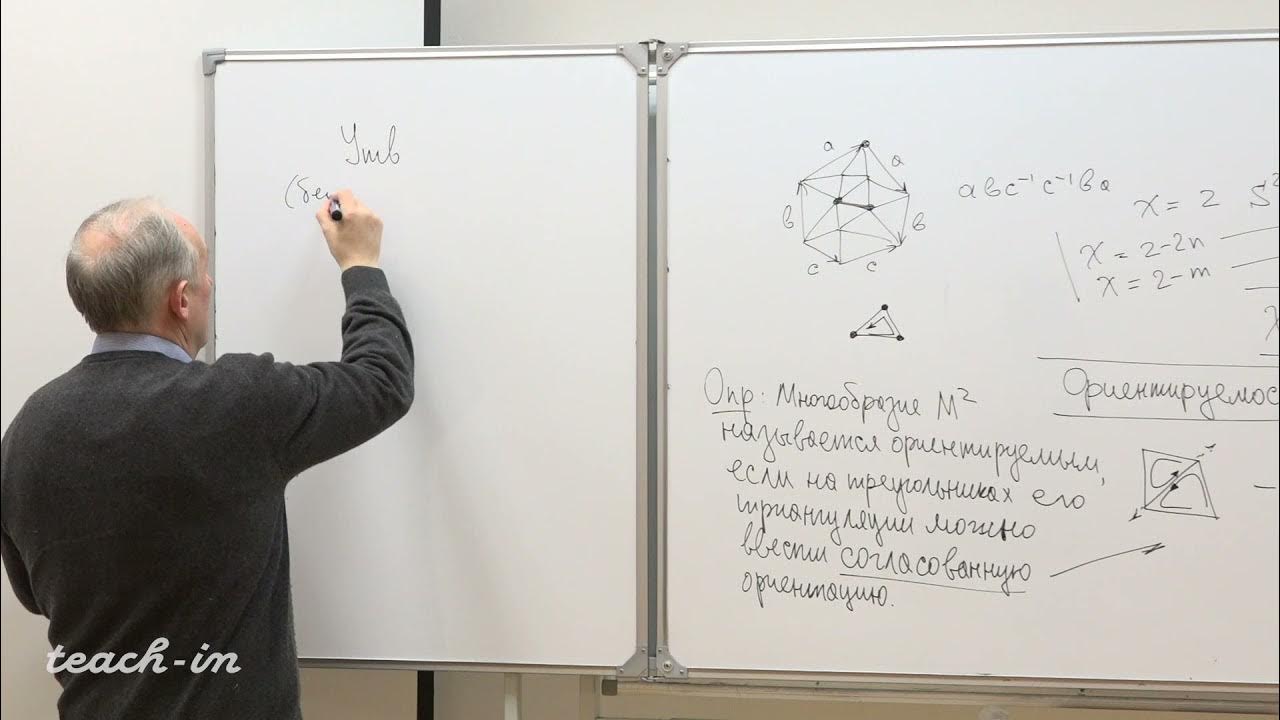 Утв
(без
a
a
в
в
c
c
aвc⁻¹c⁻¹вa
χ = 2 S²
χ = 2-2n
χ = 2-m
Ориентируемос
Опр: Многообразие M²
называется ориентируемым,
если на треугольниках его
триангуляции можно
ввести согласованную
ориентацию.
teach-in